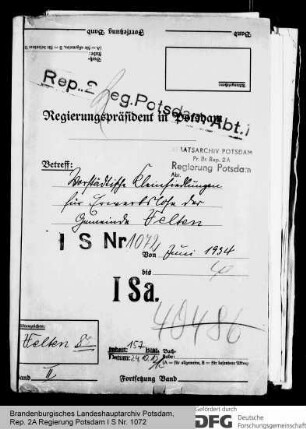 Rep. 2 Reg. Potsdam Abt. I
Regierungspräsident in Potsdam
STAATSARCHIV POTSDAM
Pr. Br. Rep. 2A
Regierung Potsdam
Abt.
Betreff:
Vorstädtische Kleinsiedlungen
für Erwerbslose der
Gemeinde Velten
I S Nr 1072
Von Juni 1934
bis
I Sa.
40486
Velten
Inhalt: 157 Blätt.
Datum: 24.10.
Fortsetzung Band
Brandenburgisches Landeshauptarchiv Potsdam,
Rep. 2A Regierung Potsdam I S Nr. 1072
Gefördert durch
DFG Deutsche
Forschungsgemeinschaft